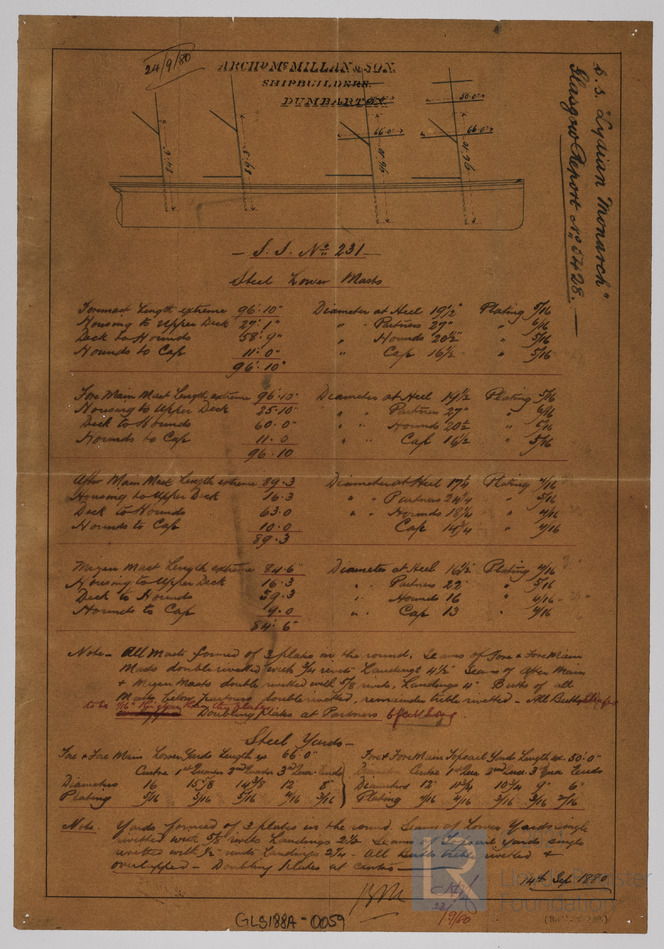 24/9/80
ARCHD. McMILLAN & SON.
SHIPBUILDERS.
DUMBARTON.
S.S. "Lydian Monarch"
Glasgow Report No. 5428.
50.0
66.0
66.0
— S.S. No. 231 —
Steel Lower Masts
Foremast Length extreme 96.10" Diameter at Heel 19½" Plating 5/16
Housing to Upper Deck 27.1" " " Partners 27" " 6/16
Deck to Hounds 58.9" " " Hounds 20½" " 5/16
Hounds to Cap 11.0" " " Cap 16½ " 5/16
96.10"
Fore Main Mast Length extreme 96.10" Diameter at Heel 19½ Plating 5/16
Housing to Upper Deck 25.10" " " Partners 27" " 6/16
Deck to Hounds 60.0" " " Hounds 20½ " 5/16
Hounds to Cap 11.0 " " Cap 16½ " 5/16
96.10
After Main Mast Length extreme 89.3 Diameter at Heel Plating 4/16
Housing to Upper Deck 16.3 " " Partners 24¼ " 5/16
Deck to Hounds 63.0 " " Hounds 18¼ " 4/16
Hounds to Cap 10.0 Cap 14¼ " 4/16
89.3
Mizen Mast Length extreme 84.6" Diameter at Heel 16½ Plating 4/16
Housing to Upper Deck 16.3 " " Partners 22 " 5/16
Deck to Hounds 59.3 " " Hounds 16 " 4/16
Hounds to Cap 9.0 " " Cap 13 " 4/16
84.6"
Note — All Masts formed of 3 plates in the round. Seams of Fore & Fore Main
Masts double riveted with ¾ rivets Landings 4½" Seams of After Main
& Mizen Masts double riveted with 5/8 rivets, Landings 4" Butts of all
Masts below partners double riveted, remainder treble riveted — All Butts
to be 1/16 thicker than the plates
Doubling plates at Partners 6 feet long
Steel Yards —
Fore & Fore Main Lower Yards Length ex 66.0" Fore & Fore Main Topsail Yards Length ex 50.0"
Centre 1st Quarter 2nd Quarter 3rd Quar. Ends Centre 1st Quar 2nd Quar. 3 Quar Ends
Diameters 16 15 5/8 14 3/8 12 8 Diameters 12" 11¾ 10¾ 9" 6"
Plating 5/16 5/16 5/16 4/16 3/16 Plating 4/16 4/16 3/16 3/16 2/16
Note. Yards formed of 3 plates in the round Seams of Lower Yards single
riveted with 5/8 rivets Landings 2½ Seams of Topsail Yards single
riveted with ½ rivets Landings 2¼ — All butts treble riveted &
overlapped — Doubling plates at centres —
14th Sep 1880
LR
Lloyd's Register
Foundation
GLS188A-0059